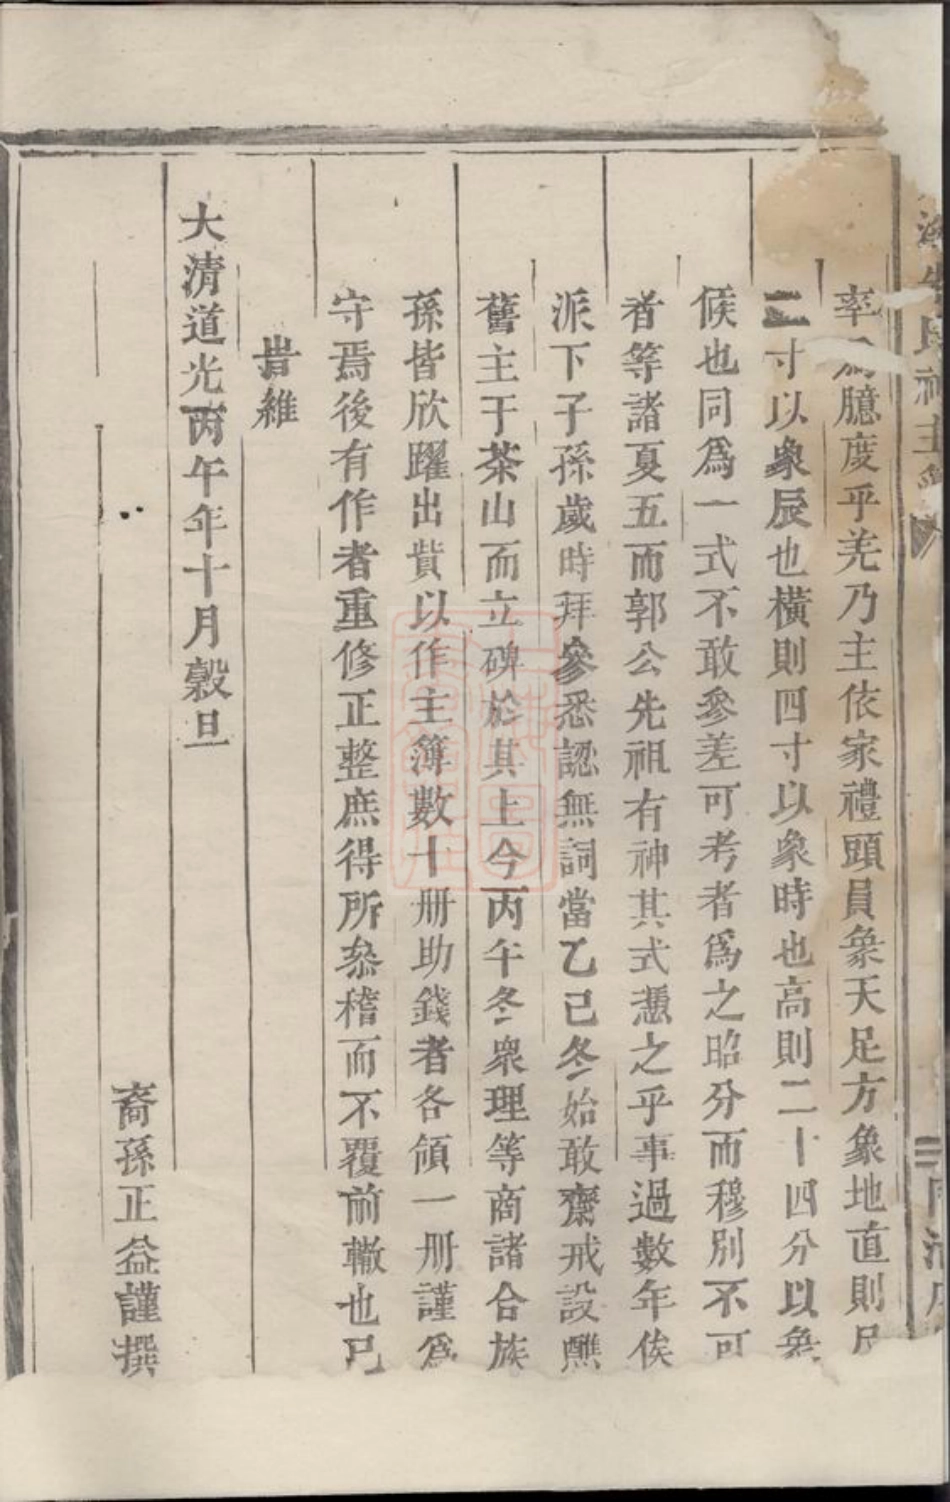 率爲臆度乎羌乃主依家禮頭員象天足方象地直則尺
二寸以象辰也橫則四寸以象時也高則二十四分以象
候也同爲一式不敢參差可考者爲之昭分而穆別不可
者等諸夏五而郭公先祖有神其式憑之乎事過數年俟
派下子孫歲時拜參悉認無詞當乙巳冬始敢齋戒設醮
舊主于茶山而立碑於其上今丙午冬衆理等商諸合族
孫皆欣躍出貲以作主簿數十册助錢者各領一册謹爲
守焉後有作者重修正整庶得所叅稽而不覆前轍也已
旹維
大清道光丙午年十月穀旦
裔孫正益謹撰